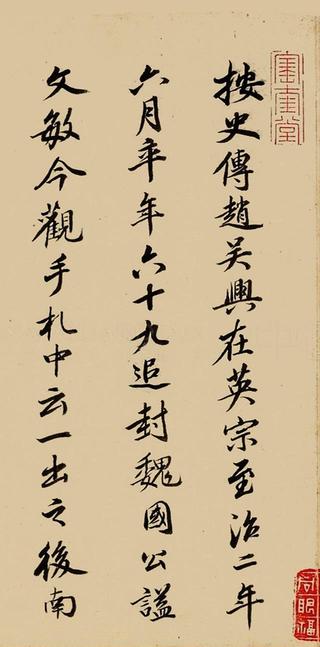 按史傳趙吴興在英宗至治二年
六月卒年六十九追封魏國公謚
文敏今觀手札中云一出之後南